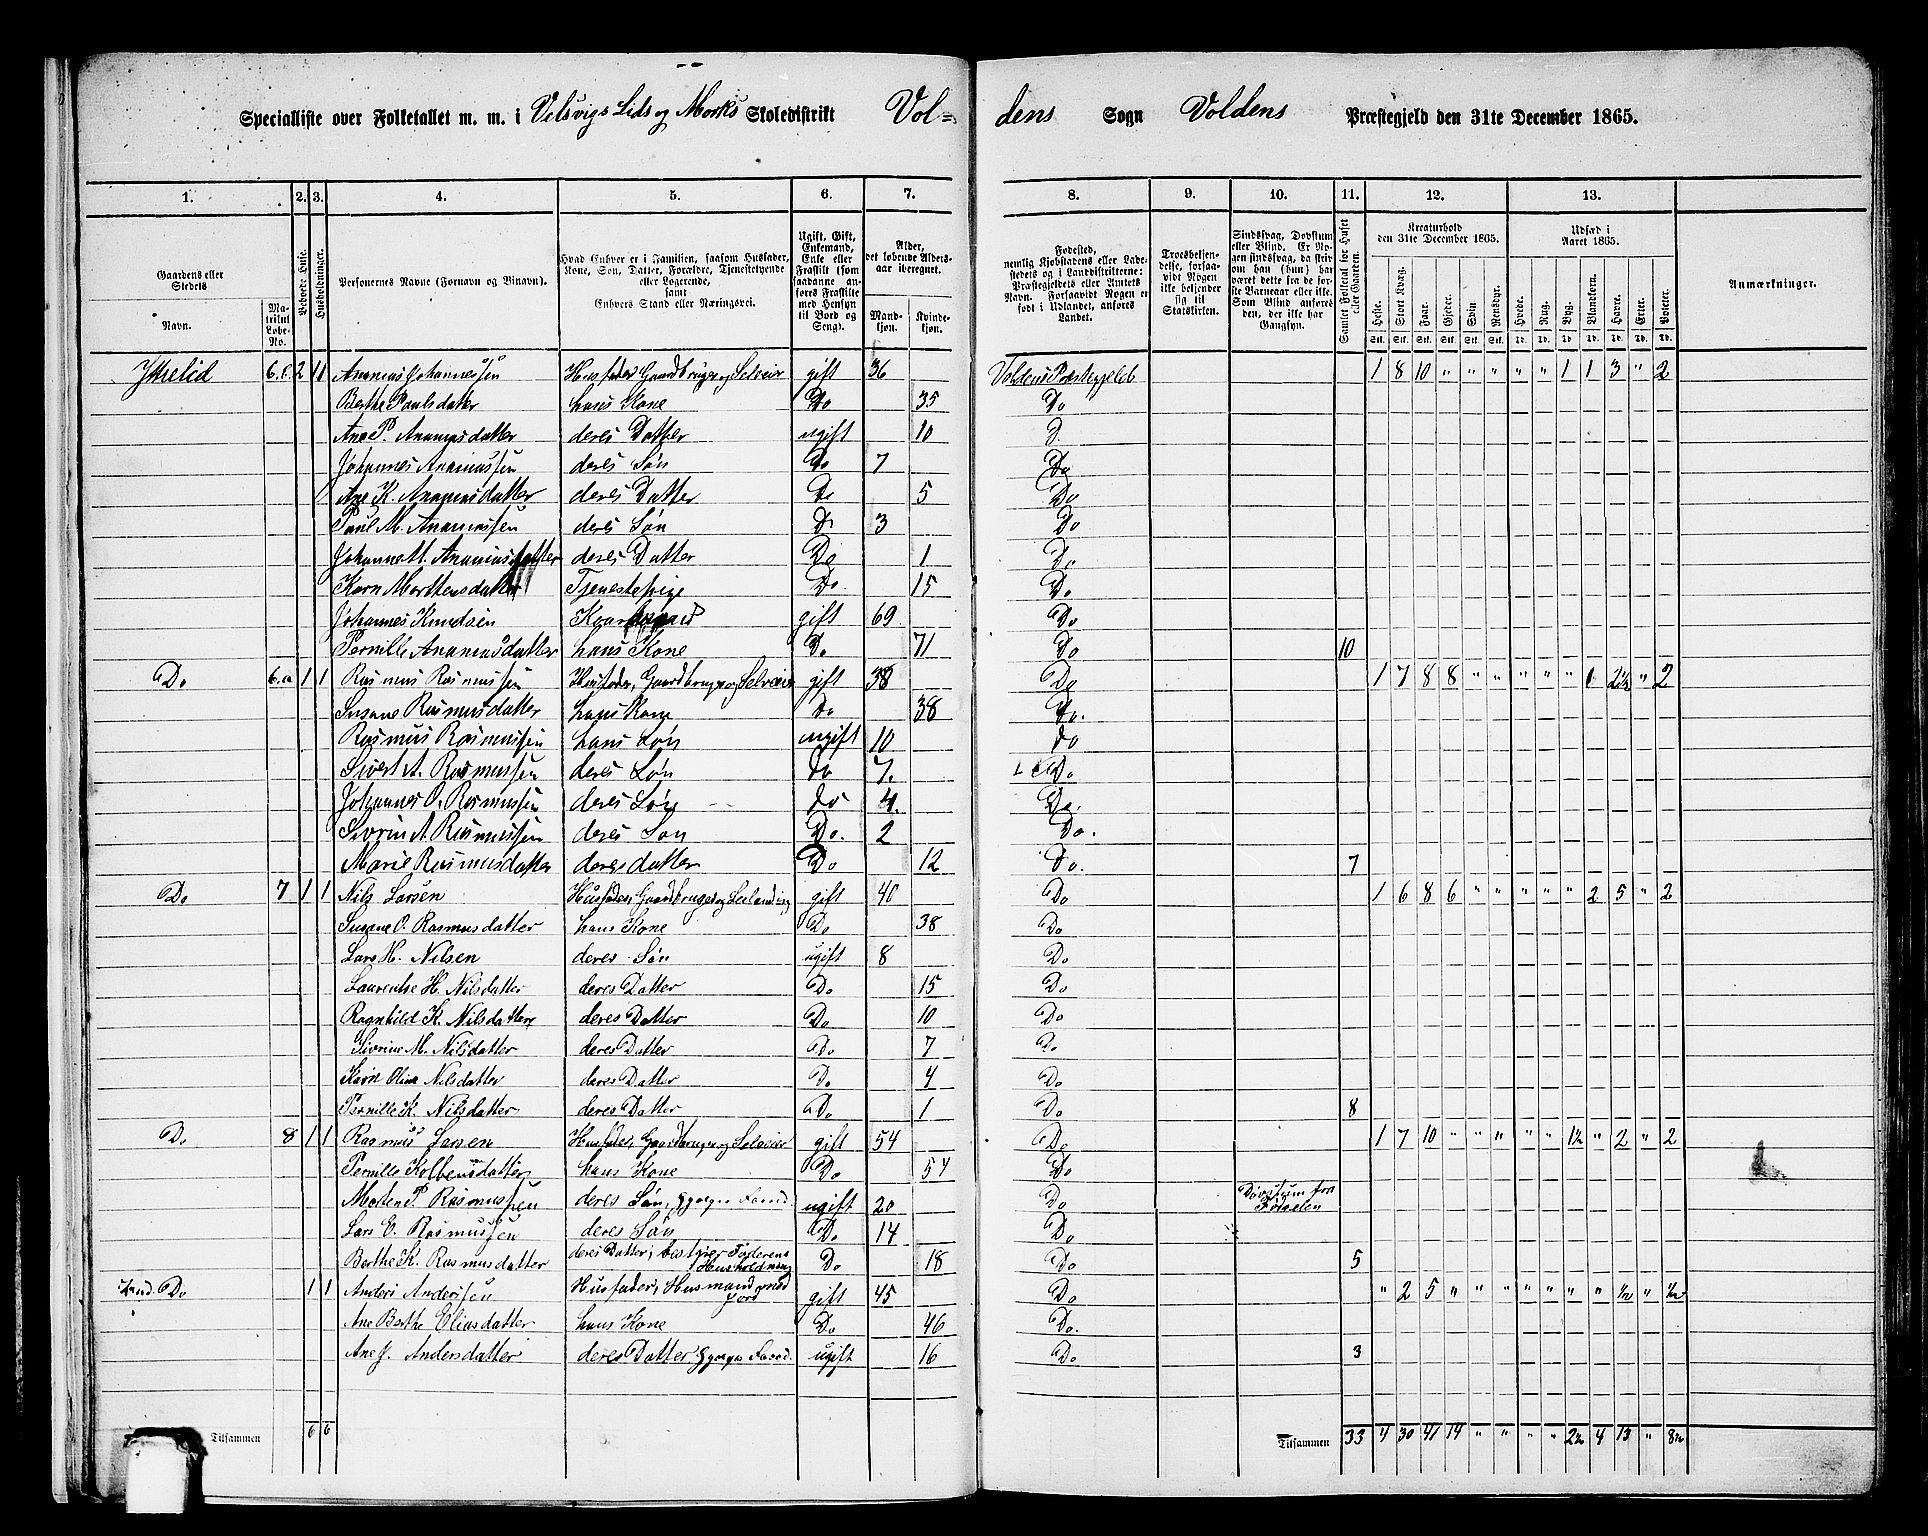 Specialliste over Folketallet m. m. i Velsvigs Lids og Morks Skoledistrikt Voldens Sogn Voldens Præstegjeld den 31te December 1865.
1. 2. 3. 4. 5. 6. 7. 8. 9. 10. 11. 12. 13.
Gaardens eller Stedets Navn. Matrikul Løbe-No.
Beboede Huse.
Husholdninger.
Personernes Navne (Fornavn og Binavn).
Hvad Enhver er i Familien, saasom Husfader, Kone, Søn, Datter, Forældre, Tjenestetyende eller Logerende, samt Enhvers Stand eller Næringsvei.
Ugift, Gift, Enkemand, Enke eller Fraskilt (som saadanne anføres Fraskilte med Hensyn til Bord og Seng).
Alder, det løbende Aldersaar iberegnet. Mandkjøn. Kvindekjøn.
Fødested, nemlig Kjøbstadens eller Ladestedets og i Landdistrikterne: Præstegjeldets eller Amtets Navn. Forsaavidt Nogen er født i Udlandet, anføres Landet.
Troesbekjendelse, forsaavidt Nogen ikke bekjender sig til Statskirken.
Sindssvag, Døvstum eller Blind. Er Nogen sindssvag, da skriv om han (hun) har været dette fra de første Barneaar eller ikke. Som Blind anføres den, der ikke har Gangsyn.
Samlet Folketal for Huset eller Gaarden.
Kreaturhold den 31te December 1865. Heste. Stort Kvæg. Faar. Gjeder. Svin. Rensdyr.
Udsæd i Aaret 1865. Hvede. Rug. Byg. Blandkorn. Havre. Erter. Poteter.
Anmærkninger.
Ytrelid 6.b. 2 1 Ananias Johannessen Husfader Gaardbruger og Selveier gift 36 Voldens Præstegjeld 1 8 10 " " " " " 1 1 3 " 2
Berthe Paulsdatter hans Kone Do 35 Do
Ane P. Ananiasdatter deres Datter ugift 10 D.
Johannes Ananiassen deres Søn Do 7 Do
Ane K. Ananiasdatter deres Datter Do 5 Do
Paul M. Ananiassen deres Søn D 3 Do
Johanne M. Ananiasdatter deres Datter Do 1 Do
Karn Mortensdatter Tjenestepige Do 15 Do
Johannes Knudsen Kaarmand gift 69 Do
Pernille Ananiasdatter hans Kone Do 71 Do 10
Do 6.a 1 1 Rasmus Rasmussen Husfader, Gaardbruger og Selveier gift 38 Do 1 7 8 8 " " " " " 1 2½ " 2
Susane Rasmusdatter hans Kone Do 38 Do.
Rasmus Rasmussen hans Søn ugift 10 Do
Sivert A. Rasmussen deres Søn Do 7. Do
Johannes O. Rasmussen deres Søn Do 4. Do.
Sivrin A Rasmussen deres Søn Do. 2 Do.
Marie Rasmusdatter deres datter Do 12 Do. 7
Do 7 1 1 Nils Larsen Husfader Gaardbruger og Leilending gift 40 Do 1 6 8 6 " " " " " 2 5 " 2
Susane O. Rasmusdatter hans Kone Do 38 Do
Lars H. Nilsen deres Søn ugift 8 Do
Laurentse H. Nilsdatter deres Datter Do 15 Do
Ragnhild K. Nilsdatter deres Datter Do 10 Do
Sivrine M. Nilsdatter deres Datter Do 7 Do
Karn Oline Nilsdatter deres Datter Do 4 Do
Pernille K. Nilsdatter deres Datter Do 1 Do 8
Do 8 1 1 Rasmus Larsen Husfader, Gaardbruger og Selveier gift 54 Do 1 7 10 " " " " " 1½ " 2 " 2
Pernille Kolbensdatter hans Kone Do 54 Do
Morten P. Rasmussen deres Søn, ugift 20 Do Døvstum fra Fødselen
Lars E. Rasmussen deres Søn Do 14 Do
Berthe K. Rasmusdatter deres Datter, bestyrer Faderens Husholdning Do 18 Do 5
Do 1 1 Anders Andersen Husfader, Husmand med Jord gift 45 Do " 2 5 " " " " " " " ½ " ½
Ane Berthe Eliasdatter hans Kone Do 46 Do.
Ane J. Andersdatter deres Datter, ugift 16 Do 3
Tilsammen 6 6 Tilsammen 33 4 30 41 14 " " " " 2½ 4 13 " 8½